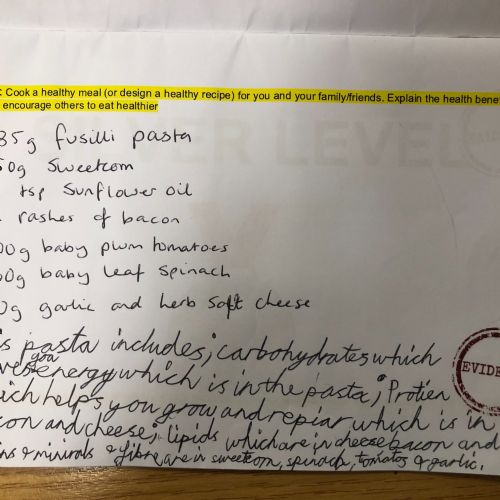 : Cook a healthy meal (or design a healthy recipe) for you and your family/friends. Explain the health bene
encourage others to eat healthier
35g fusilli pasta
50g sweetcorn
tsp sunflower oil
rashes of bacon
00g baby plum tomatoes
00g baby leaf spinach
0g garlic and herb soft cheese
is pasta includes; carbohydrates which
ves you energy which is in the pasta; Protien
ich helps you grow and repiar which is in
con and cheese; lipids which are in cheese bacon and
ns & minirals & fibre are in sweetcorn, spinach, tomatos & garlic.
EVIDE